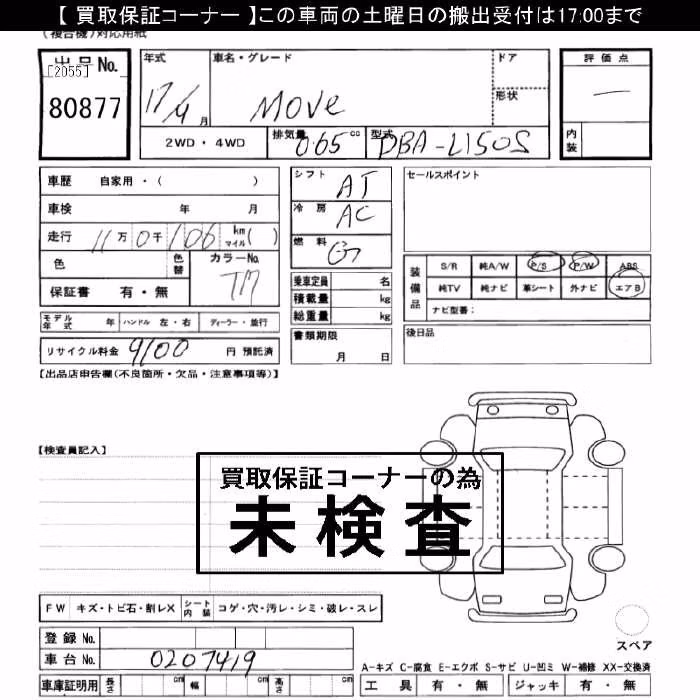 【 買取保証コーナー 】この車両の土曜日の搬出受付は17:00まで
(複合機)対応用紙
出品No.
[2055]
80877
年式
17/4月
車名・グレード
MOVE
ドア
形状
評価点
—
内装
2WD・4WD
排気量 065 cc
型式 DBA-L150S
車歴 自家用・( )
車検 年 月
走行 11万0千106 km マイル( )
色
色替
カラーNo.
TM
保証書 有・無
シフト AT
冷房 AC
燃料 G
乗車定員 名
積載量 kg
総重量 kg
書類期限
月 日
セールスポイント
装備品
S/R 純A/W P/S P/W ABS
純TV 純ナビ 革シート 外ナビ エアB
ナビ型番:
後日品
モデル年式 年 ハンドル 左・右 ディーラー・並行
リサイクル料金 9100 円 預託済
【出品店申告欄(不良箇所・欠品・注意事項等)】
【検査員記入】
買取保証コーナーの為
未検査
FW キズ・トビ石・割レX シート内装 コゲ・穴・汚レ・シミ・破レ・スレ
登録 No.
車台 No. 0207419
車庫証明用 長さ cm 幅 cm 高さ cm
スペア
A-キズ C-腐食 E-エクボ S-サビ U-凹ミ W-補修 XX-交換済
工具 有・無 ジャッキ 有・無